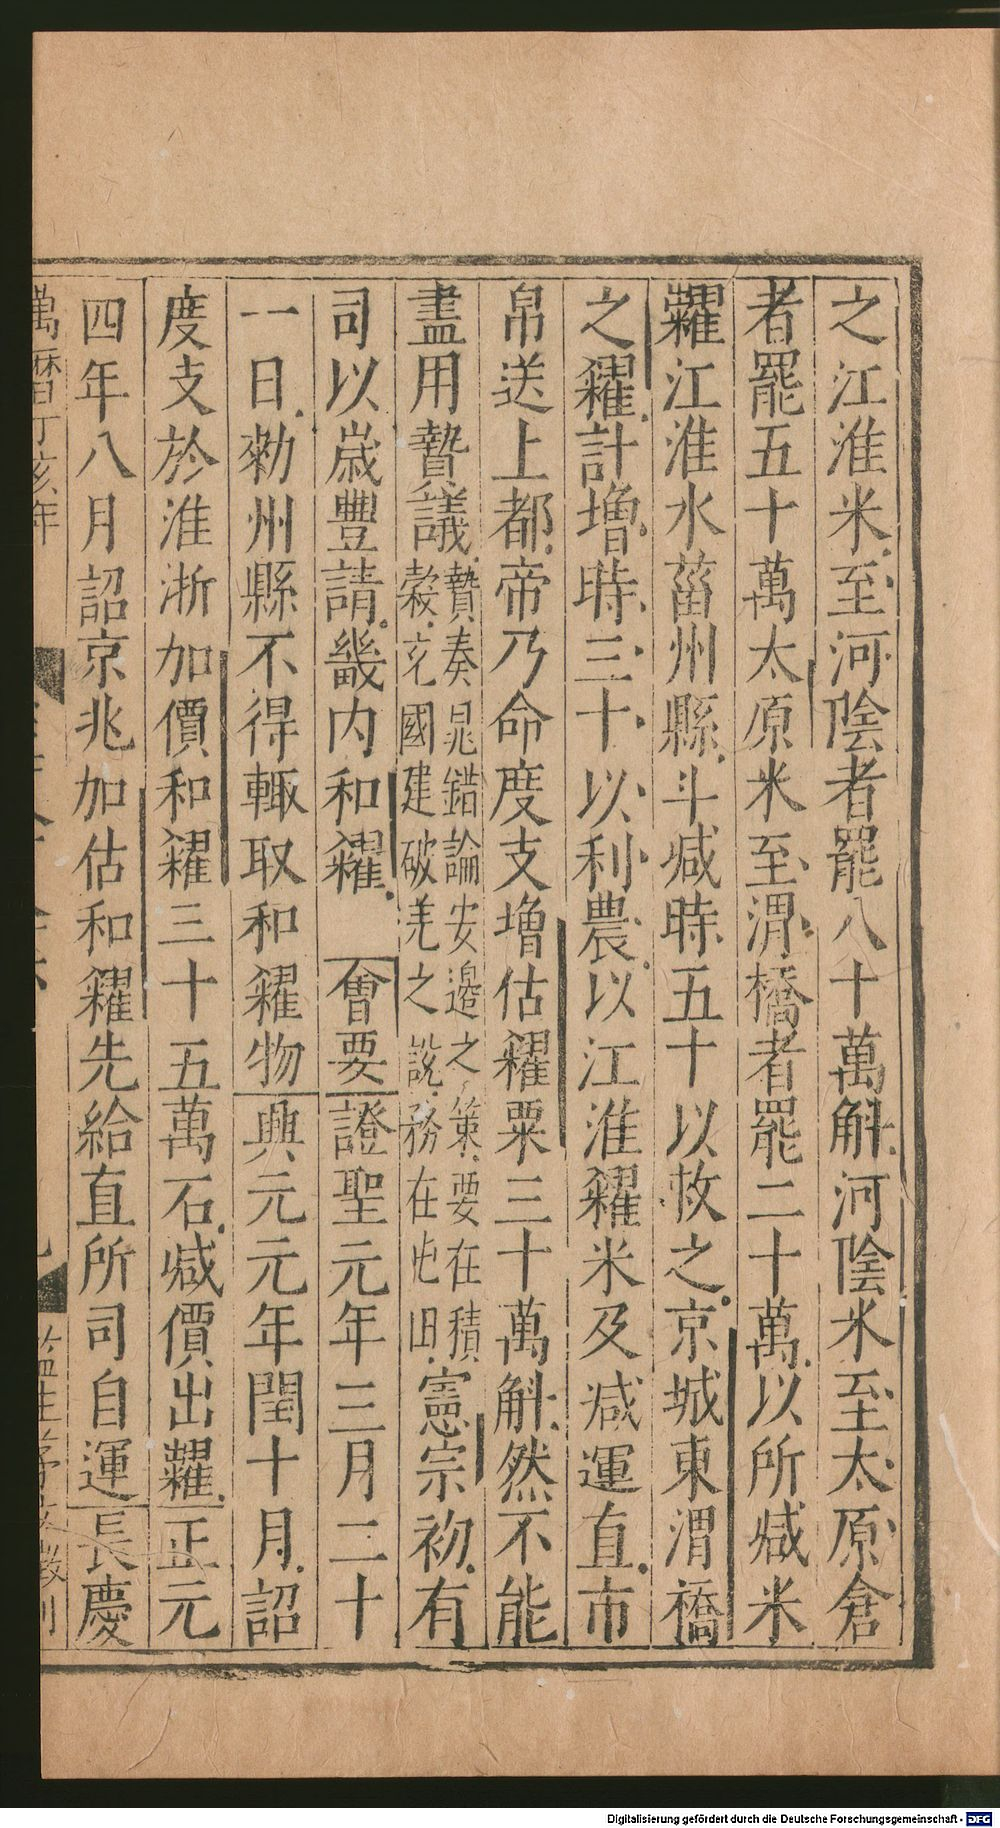 之江淮米至河陰者罷八十萬斛河陰米至太原倉
者罷五十萬太原米至渭橋者罷二十萬以所减米
糶江淮水菑州縣斗减時五十以救之京城東渭橋
之糴計增時三十以利農以江淮糴米及减運直市
帛送上都帝乃命度支增估糴粟三十萬斛然不能
盡用贄議
贄奏晁錯論安邊之策要在積
穀充國建破羌之說務在屯田
憲宗初有
司以歲豐請畿內和糴 會要證聖元年三月二十
一日勑州縣不得輒取和糴物興元元年閏十月詔
度支於淮浙加價和糴三十五萬石减價出糶正元
四年八月詔京兆加估和糴先給直所司自運長慶
萬曆丁亥年
監生
刊
Digitalisierung gefördert durch die Deutsche Forschungsgemeinschaft - DFG